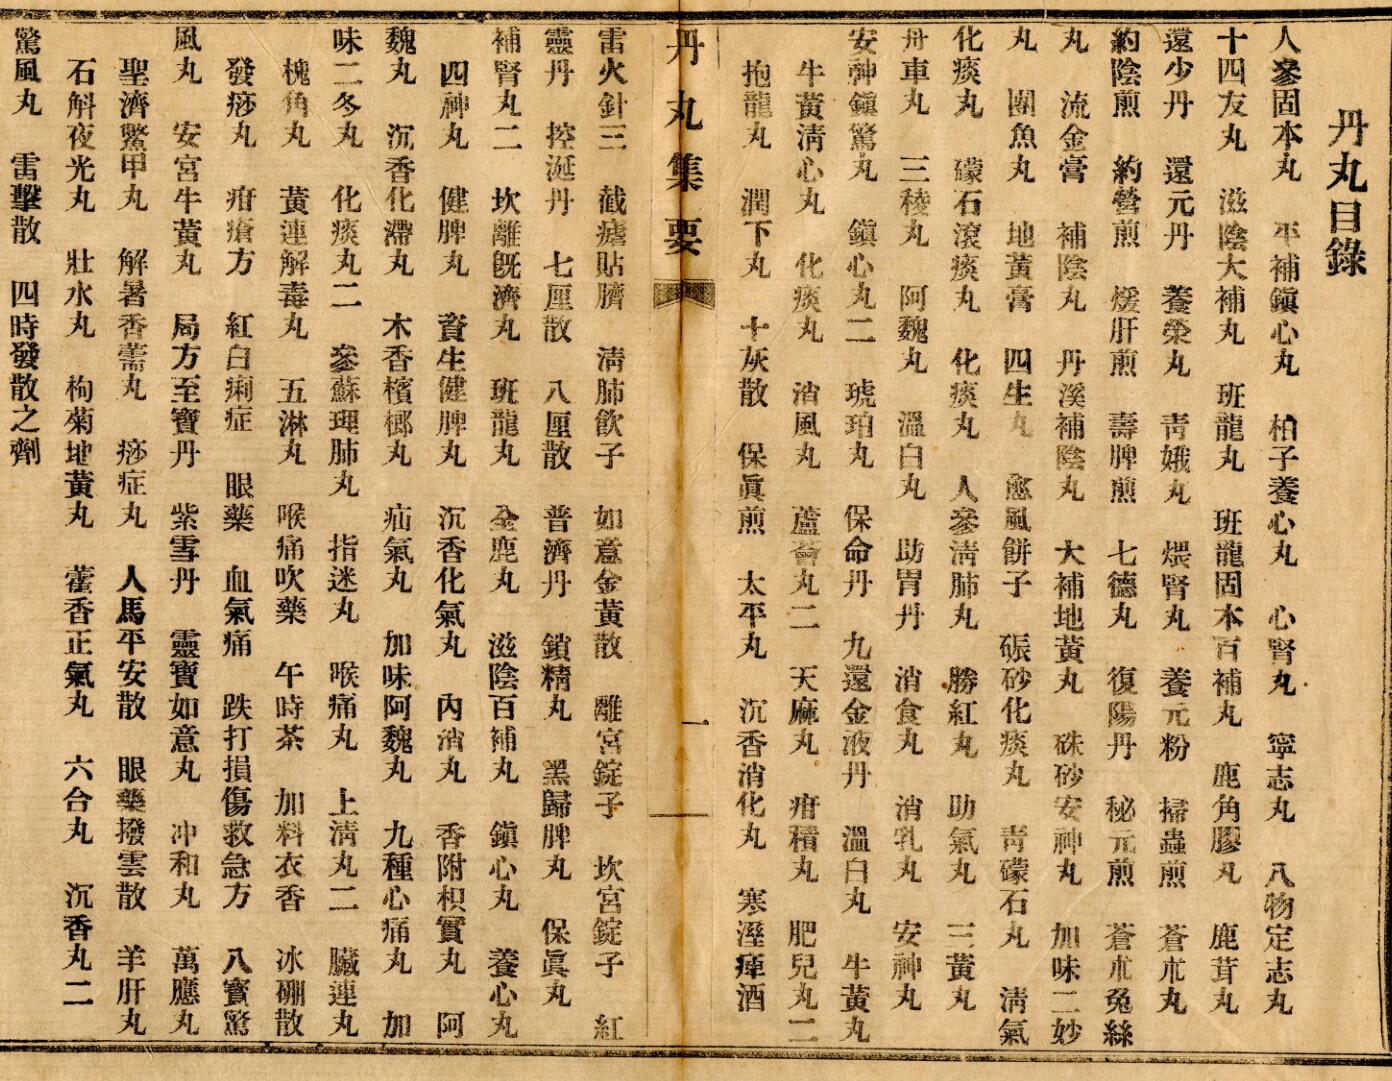 丹丸目錄
人參固本丸 平補鎭心丸 柏子養心丸 心腎丸 寧志丸 八物定志丸
十四友丸 滋陰大補丸 班龍丸 班龍固本百補丸 鹿角膠丸 鹿茸丸
還少丹 還元丹 養榮丸 靑娥丸 煨腎丸 養元粉 掃蟲煎 蒼朮丸
約陰煎 約營煎 煖肝煎 壽脾煎 七德丸 復陽丹 秘元煎 蒼朮兔絲
丸 流金膏 補陰丸 丹溪補陰丸 大補地黃丸 硃砂安神丸 加味二妙
丸 團魚丸 地黃膏 四生丸 愈風餅子 碾砂化痰丸 靑礞石丸 淸氣
化痰丸 礞石滾痰丸 化痰丸 人參淸肺丸 勝紅丸 助氣丸 三黃丸
舟車丸 三稜丸 阿魏丸 溫白丸 助胃丹 消食丸 消乳丸 安神丸
安神鎭驚丸 鎭心丸二 琥珀丸 保命丹 九還金液丹 溫白丸 牛黃丸
牛黃淸心丸 化痰丸 消風丸 蘆薈丸二 天麻丸 疳積丸 肥兒丸二
抱龍丸 潤下丸 十灰散 保眞煎 太平丸 沉香消化丸 寒溼瘴酒
丹丸集要
一
雷火針三 截瘧貼臍 淸肺飮子 如意金黃散 離宮錠子 坎宮錠子 紅
靈丹 控涎丹 七厘散 八厘散 普濟丹 鎖精丸 黑歸脾丸 保眞丸
補腎丸二 坎離旣濟丸 班龍丸 全鹿丸 滋陰百補丸 鎭心丸 養心丸
四神丸 健脾丸 資生健脾丸 沉香化氣丸 內消丸 香附枳實丸 阿
魏丸 沉香化滯丸 木香檳榔丸 疝氣丸 加味阿魏丸 九種心痛丸 加
味二冬丸 化痰丸二 參蘇理肺丸 指迷丸 喉痛丸 上淸丸二 臟連丸
槐角丸 黃連解毒丸 五淋丸 喉痛吹藥 午時茶 加料衣香 冰硼散
發痧丸 疳瘡方 紅白痢症 眼藥 血氣痛 跌打損傷救急方 八寶驚
風丸 安宮牛黃丸 局方至寶丹 紫雪丹 靈寶如意丸 冲和丸 萬應丸
聖濟鱉甲丸 解暑香薷丸 痧症丸 人馬平安散 眼藥撥雲散 羊肝丸
石斛夜光丸 壯水丸 枸菊地黃丸 藿香正氣丸 六合丸 沉香丸二
驚風丸 雷擊散 四時發散之劑